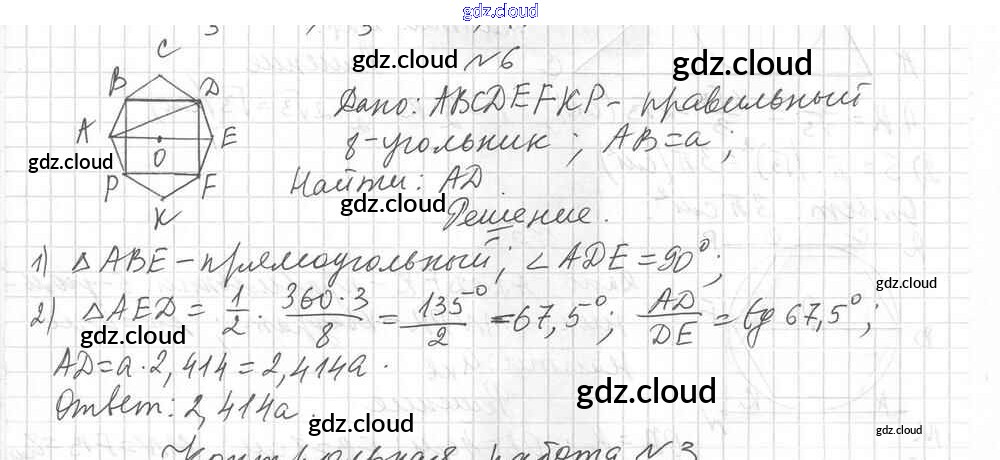 gdz.cloud
C
gdz.cloud №6 gdz.cloud
B D
Дано: ABCDEFKP – правильный
A E
O
8-угольник; AB=a;
gdz.cloud
P F
Найти: AD
gdz.cloud
K
Решение.
1) △ABE – прямоугольный; ∠ADE = 90°;
gdz.cloud
2) △AED = 1/2 · 360·3/8 = 135°/2 = 67,5°; AD/DE = tg 67,5°;
gdz.cloud
AD = a·2,414 = 2,414a.
gdz.cloud
Ответ: 2,414a.
gdz.cloud
gdz.cloud
Контрольная работа №3